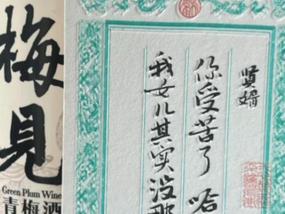 梅見
Green Plum Wine
青梅酒
賢婿
你受苦了
我女儿其实没那